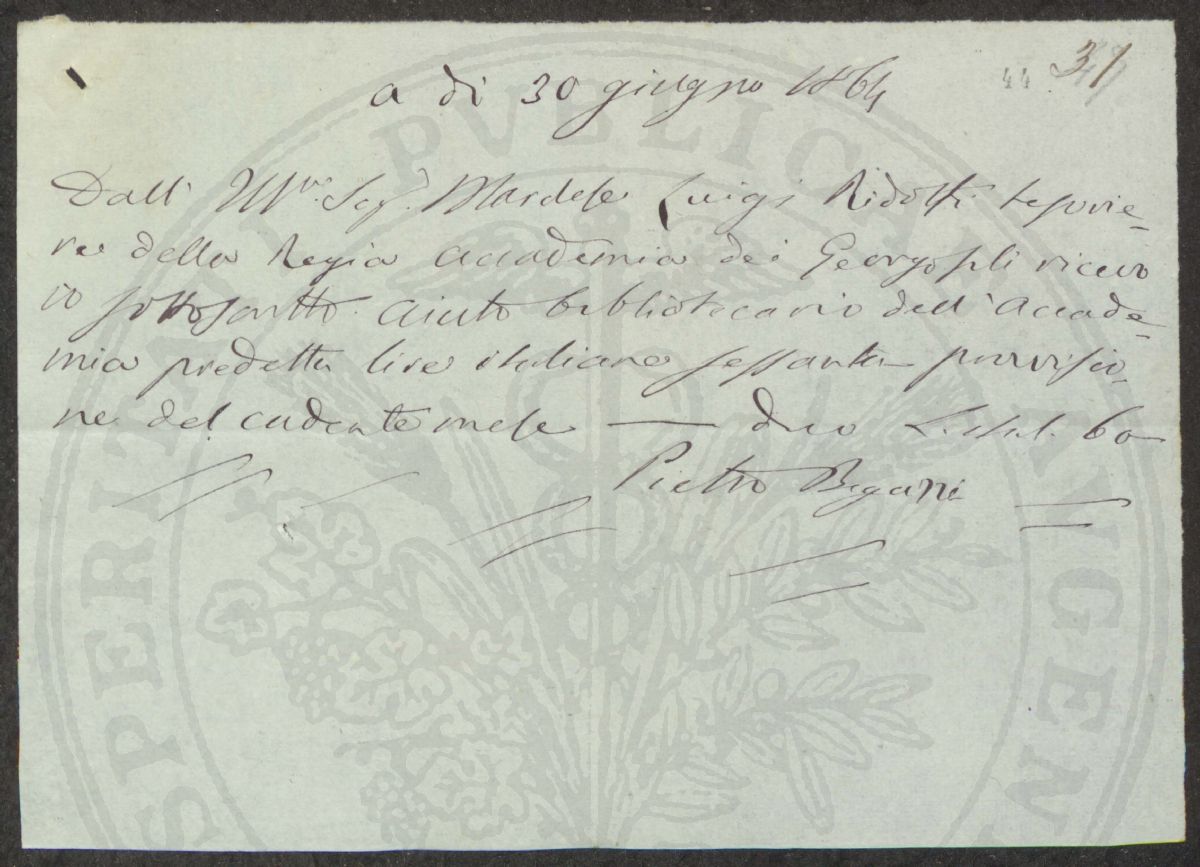 44 37
a dì 30 giugno 1864
Dall' Ill.mo Sig. Marchese Luigi Ridolfi tesorie=
re della Regia Accademia dei Georgofili ricevo
io sottoscritto aiuto bibliotecario dell'Accade=
mia predetta lire italiane sessanta provvisio=
ne del cadente mese — dico L. ital. 60
Pietro
PROSPERITATI PUBLICAE AUGENDAE